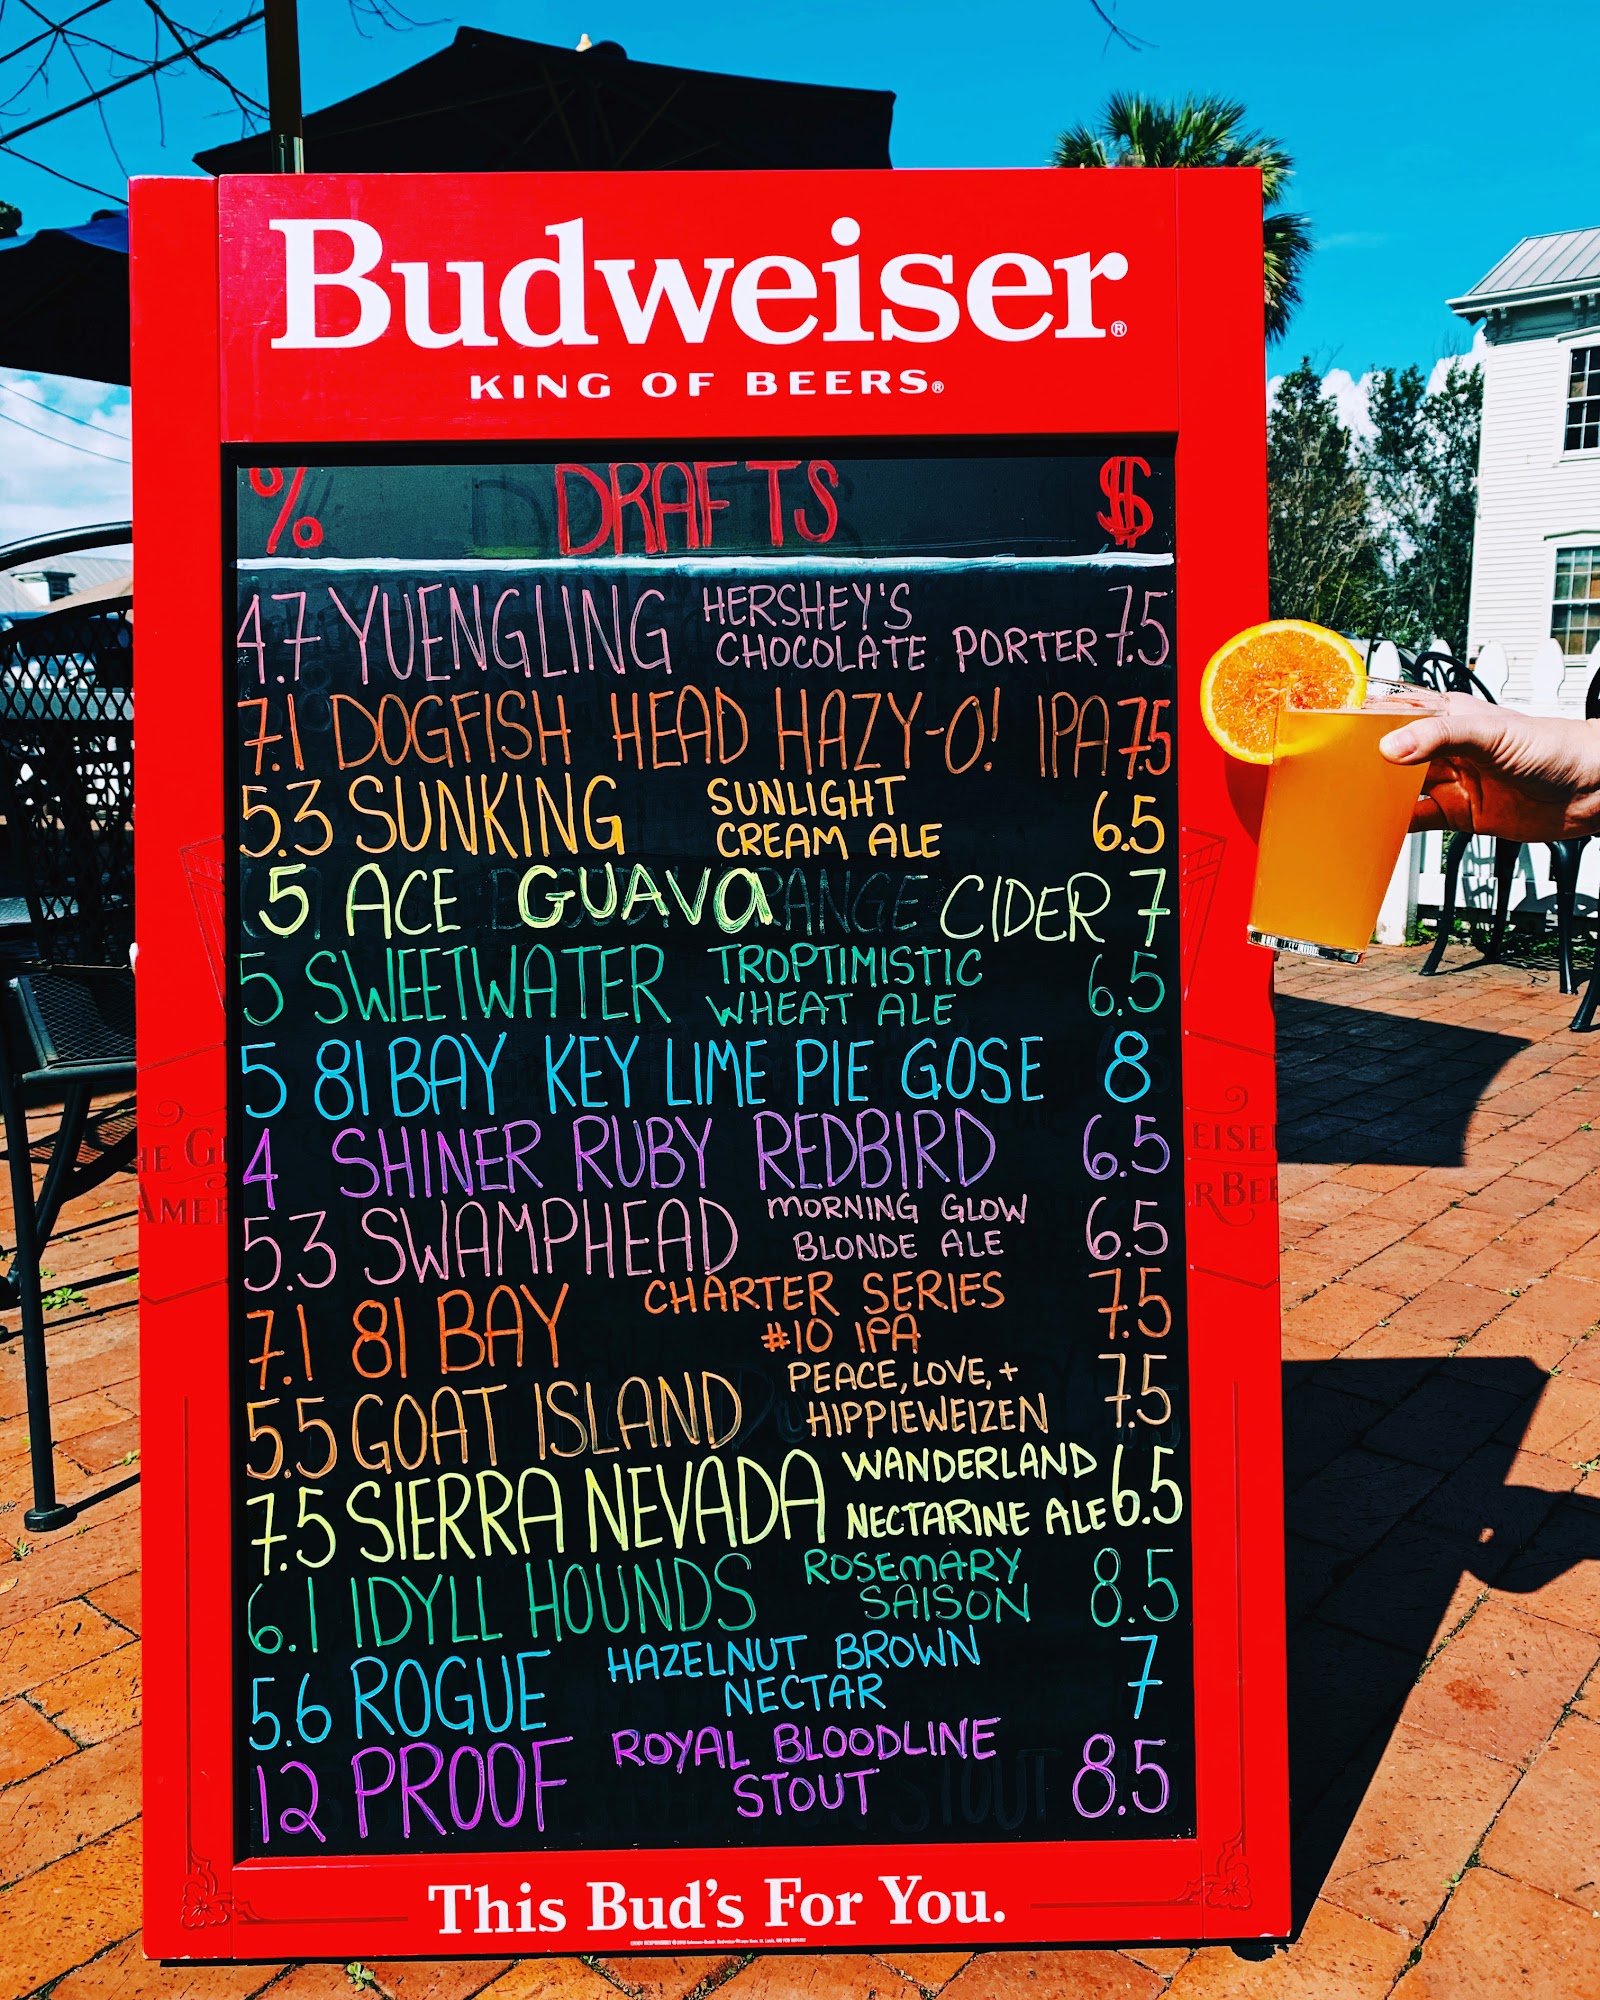 Budweiser®
KING OF BEERS®
% DRAFTS $
4.7 YUENGLING HERSHEY'S CHOCOLATE PORTER 7.5
7.1 DOGFISH HEAD HAZY-O! IPA 7.5
5.3 SUNKING SUNLIGHT CREAM ALE 6.5
5 ACE GUAVA CIDER 7
5 SWEETWATER TROPTIMISTIC WHEAT ALE 6.5
5 81 BAY KEY LIME PIE GOSE 8
4 SHINER RUBY REDBIRD 6.5
5.3 SWAMPHEAD MORNING GLOW BLONDE ALE 6.5
7.1 81 BAY CHARTER SERIES #10 IPA 7.5
5.5 GOAT ISLAND PEACE, LOVE, + HIPPIEWEIZEN 7.5
7.5 SIERRA NEVADA WANDERLAND NECTARINE ALE 6.5
6.1 IDYLL HOUNDS ROSEMARY SAISON 8.5
5.6 ROGUE HAZELNUT BROWN NECTAR 7
12 PROOF ROYAL BLOODLINE STOUT 8.5
This Bud's For You.